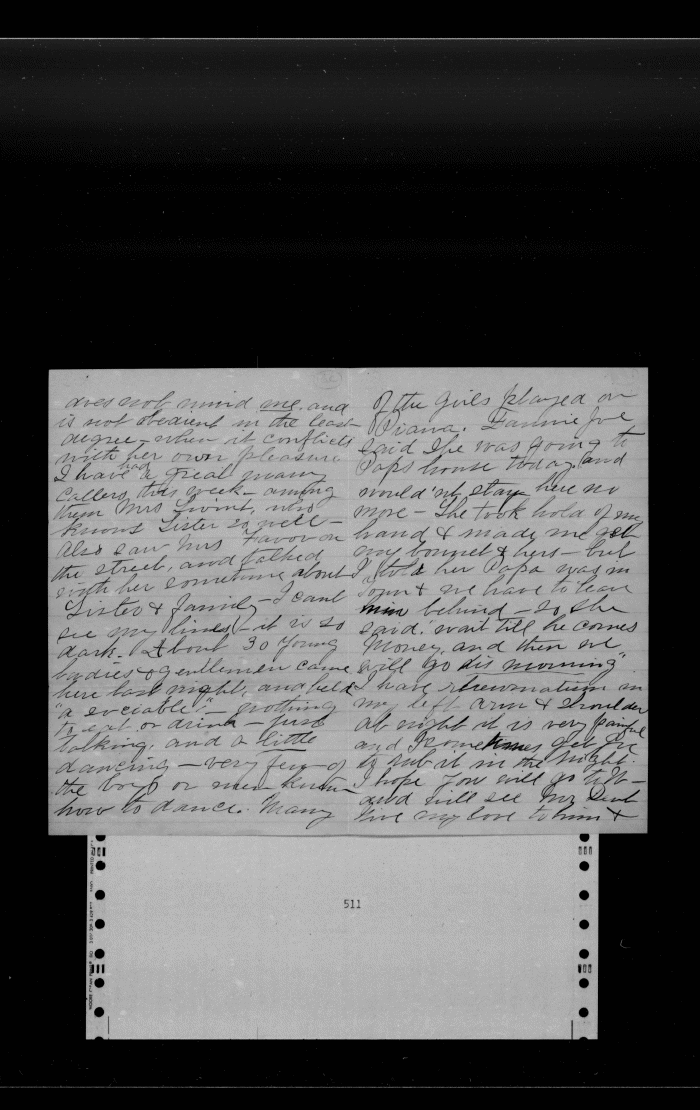 does not mind me. and
is not obedient in the least
degree, when it conflicts
with her own pleasure
I have had a great many
callers this week - among
them Mrs who
knows Sister so well -
also saw Mrs Favor on
the street, and talked
with her sometime about
Sister & family - I cant
see my lines, it is so
dark. About 30 young
ladies & gentlemen came
here last night, and held
"a sociable" - nothing
to eat or drink - just
talking. and a little
dancing - very few of
the boys or men know
how to dance. Many
of the girls played on
Piano. Fannie Joe
said she was going to
Pops house today. and
would'nt stay here no
more - She took hold of my
hand & made me get
my bonnet & hers - but
I told her Papa was in
Town & we have to leave
him behind - so she
said. "wait till he comes
Money, and then we
will go dis morning".
I have rheumatism in
my left arm & shoulder
at night it is very painful
and I sometimes get up
to rub it in the night.
I hope you will go to
and will see
Give my love to him &
511